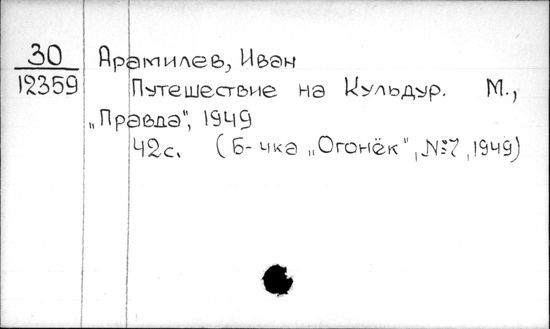 30
12359
Арамилев, Иван
Путешествие на Кульдур. М.,
„Правда", 1949
42с. (Б-чка „Огонёк", №7, 1949)